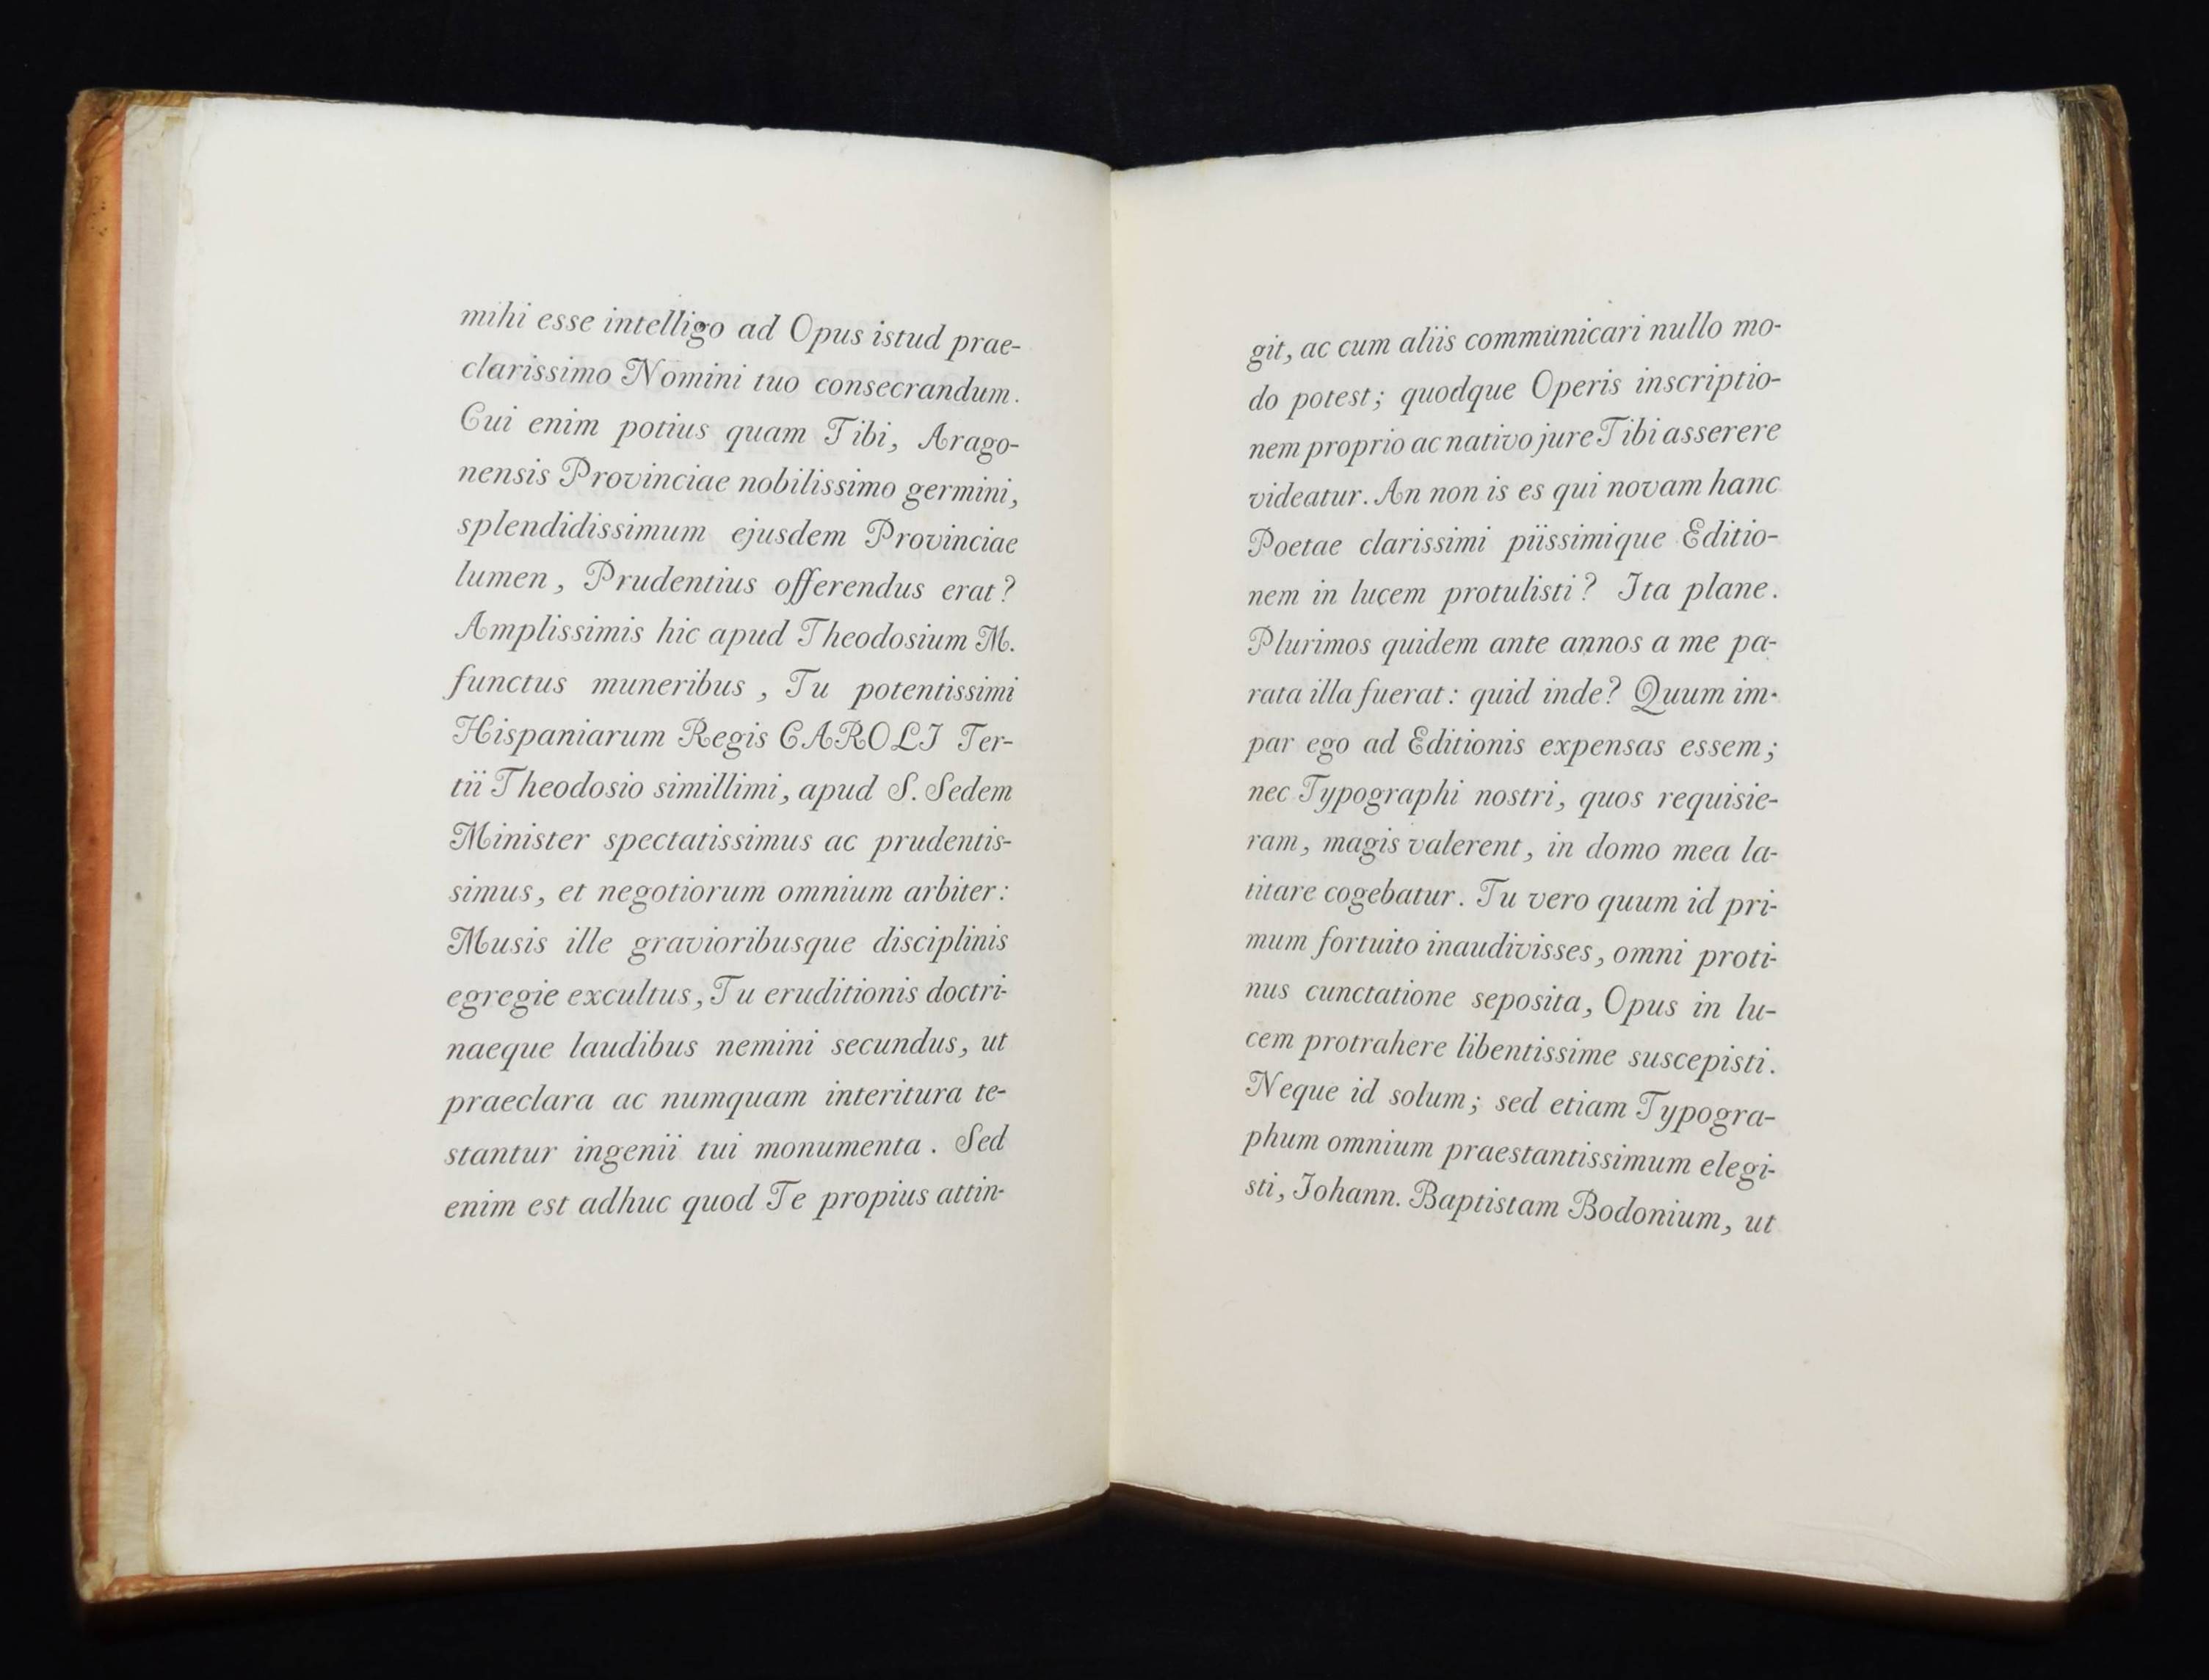 mihi esse intelligo ad Opus istud prae-
clarissimo Nomini tuo consecrandum.
Cui enim potius quam Tibi, Arago-
nensis Provinciae nobilissimo germini,
splendidissimum ejusdem Provinciae
lumen, Prudentius offerendus erat?
Amplissimis hic apud Theodosium M.
functus muneribus, Tu potentissimi
Hispaniarum Regis CAROLI Ter-
tii Theodosio simillimi, apud S. Sedem
Minister spectatissimus ac prudentis-
simus, et negotiorum omnium arbiter:
Musis ille gravioribusque disciplinis
egregie excultus, Tu eruditionis doctri-
naeque laudibus nemini secundus, ut
praeclara ac numquam interitura te-
stantur ingenii tui monumenta. Sed
enim est adhuc quod Te propius attin-
git, ac cum aliis communicari nullo mo-
do potest; quodque Operis inscriptio-
nem proprio ac nativo jure Tibi asserere
videatur. An non is es qui novam hanc
Poetae clarissimi piissimique Editio-
nem in lucem protulisti? Ita plane.
Plurimos quidem ante annos a me pa-
rata illa fuerat: quid inde? Quum im-
par ego ad Editionis expensas essem;
nec Typographi nostri, quos requisie-
ram, magis valerent, in domo mea la-
titare cogebatur. Tu vero quum id pri-
mum fortuito inaudivisses, omni proti-
nus cunctatione seposita, Opus in lu-
cem protrahere libentissime suscepisti.
Neque id solum; sed etiam Typogra-
phum omnium praestantissimum elegi-
sti, Johann. Baptistam Bodonium, ut